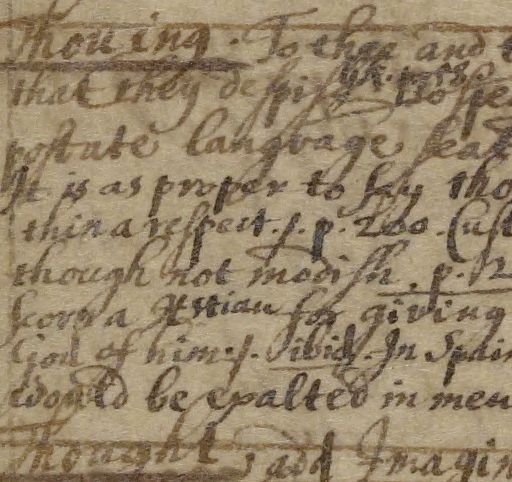 Thou ing. To thee and t
that they despise
postate language
It is as proper to say tho
thin a respect. s. p. 200. Cust
though not modish. p. 2
for giving
God of him. s. ibid. In Spain
would be exalted in men
Thought, add Imagin